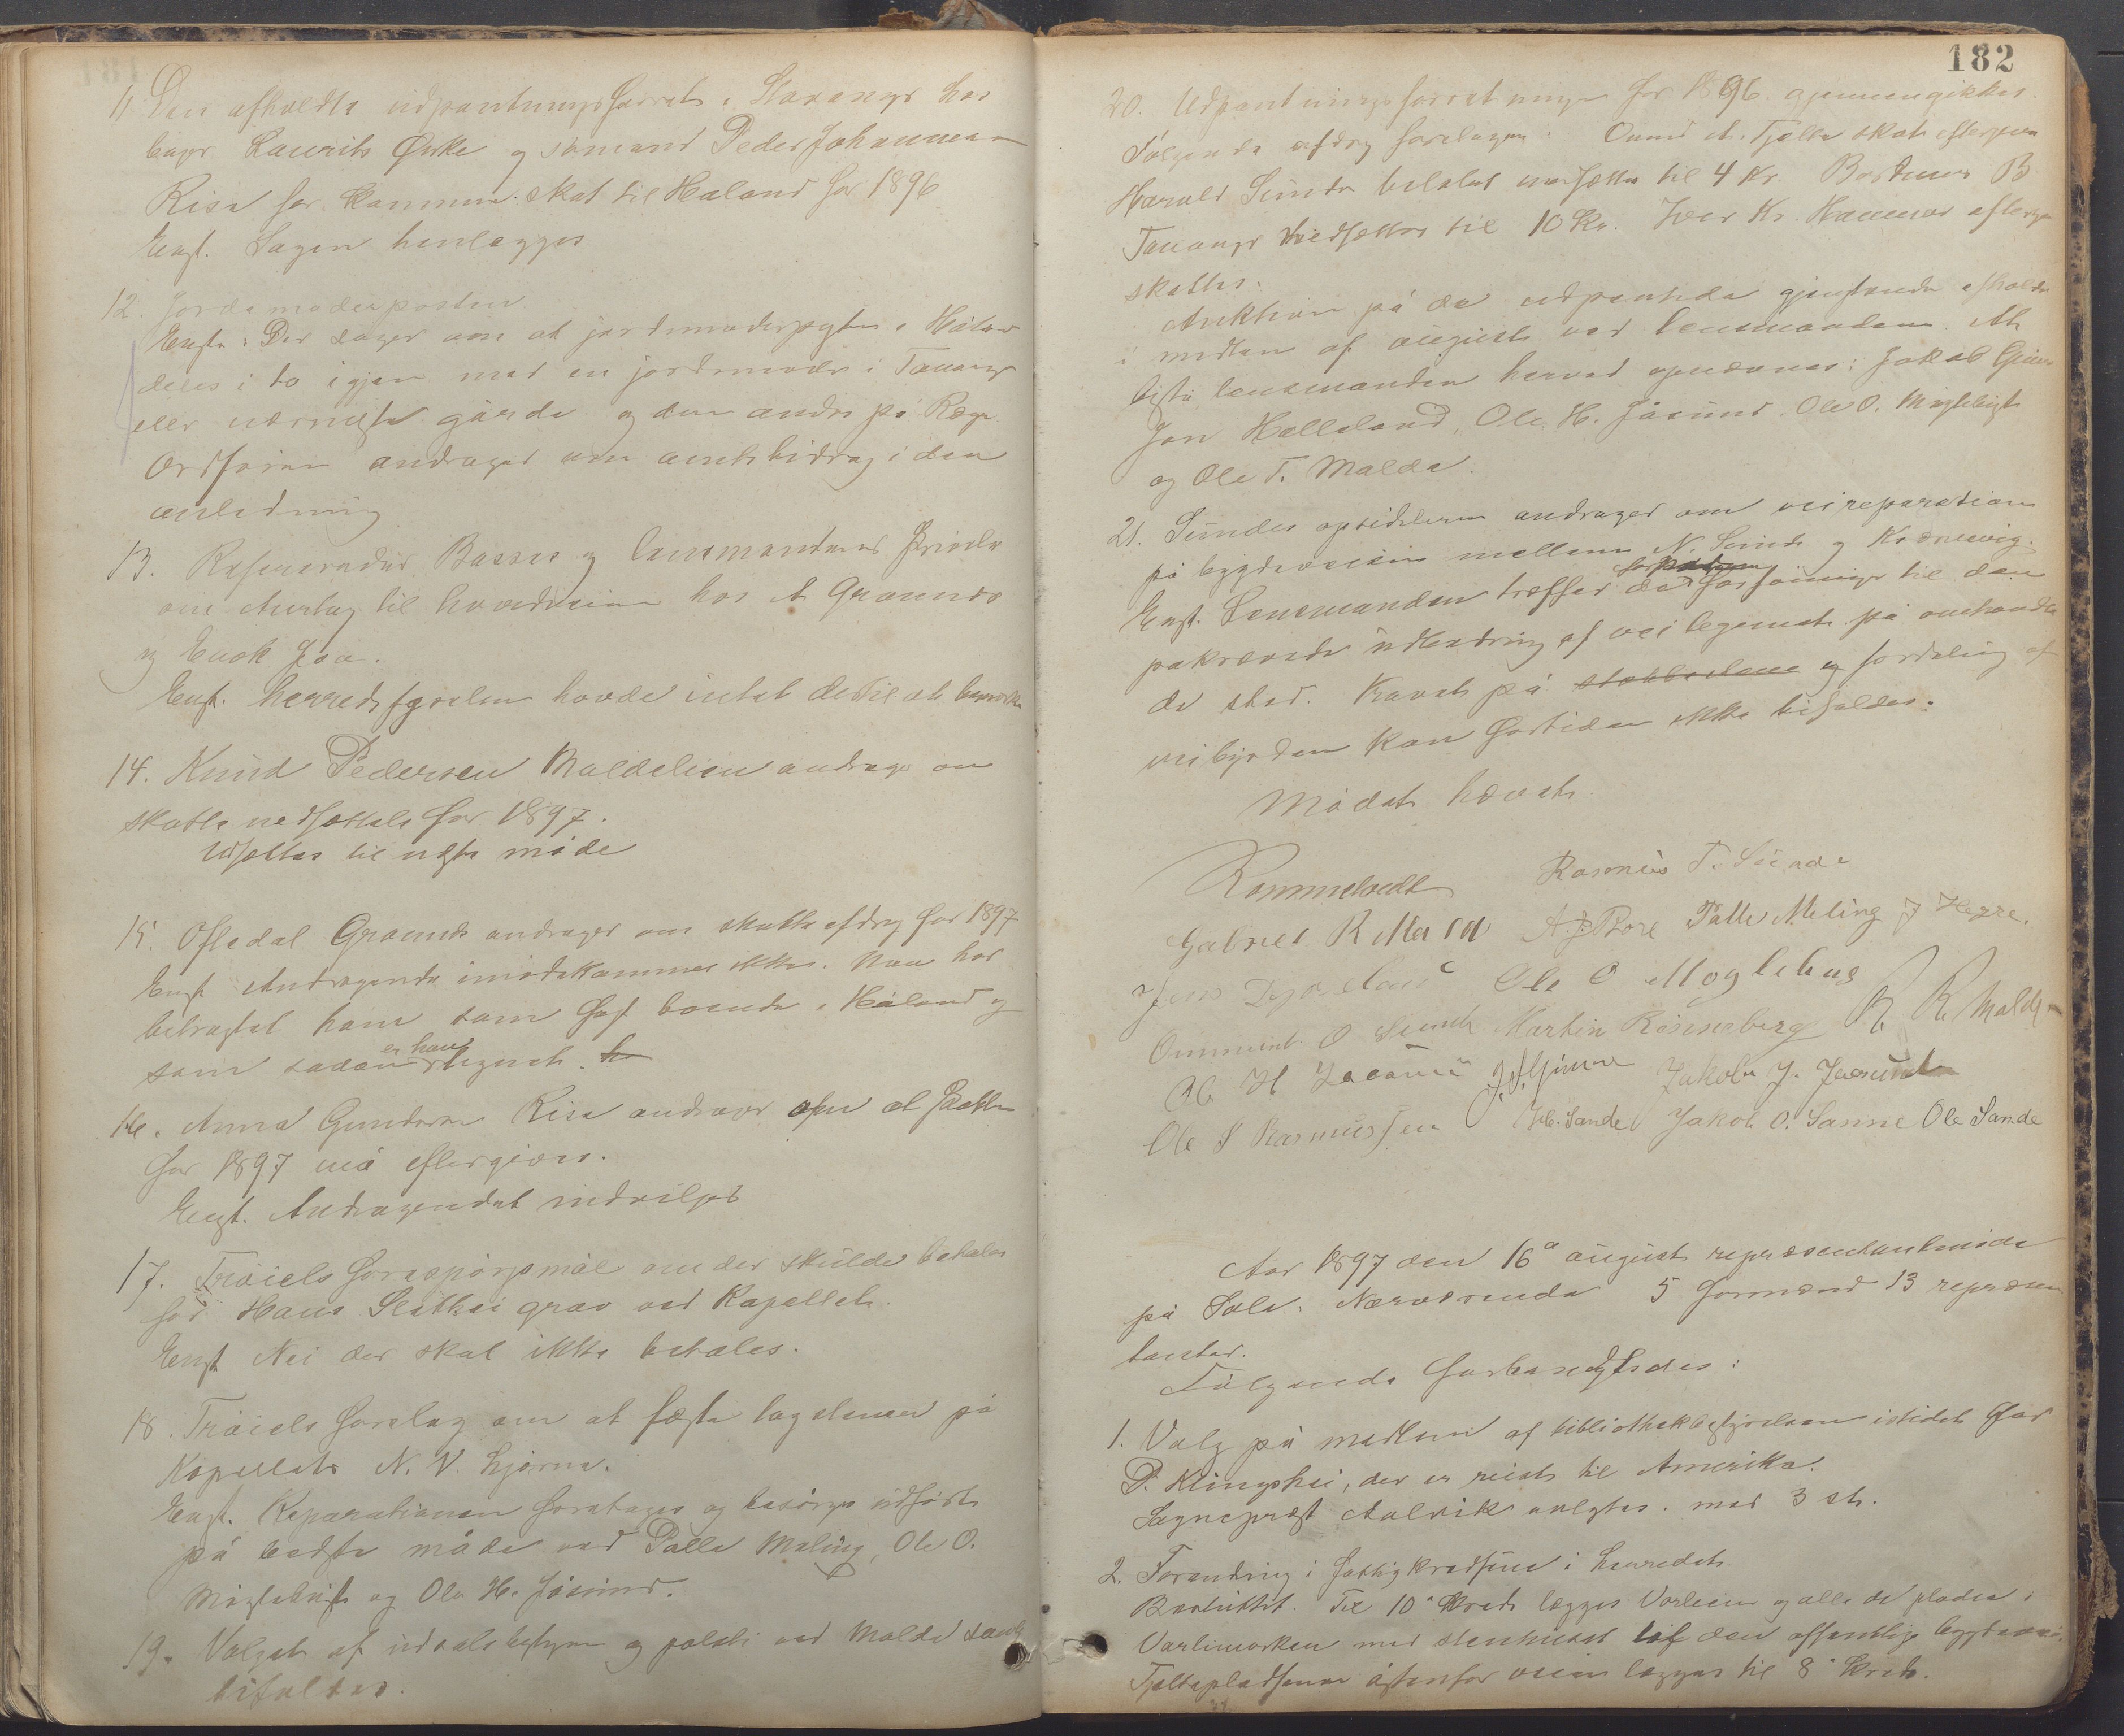 11 Den afholdte udpantningsforret. i Stavanger hos
bager Laurits Ørke og sømand Peder Johannesen
Risa for kommuneskat til Haland for 1896
Enst. Sagen henlægges
12. Jordemoderposten.
Enst. Der søges om at jordemoderposten i Håland
deles i to igjen med en jordemoder i Tananger
eller nærmeste gårde og den andre på Rege
Ordføreren andrager om amtsbidrag i den
anledning
13. Lensmandens Skrivelse
om Anlæg til hovedveien hos A Grannes
og Enok Joa.
Enst. herredsstyrelsen havde intet dertil at bemærke
14. Knud Pedersen Maldelien andrager om
skattenedsættelse for 1897.
Udsættes til næste møde
15. Ofledal Grannes andrager om skatteafdrag for 1897
Enst Andragende imødekommes ikke. Man har
betragtet ham som fast boende i Håland og
som sadan er han lignet.
16. Anna Gundersen Risa andrager om at skatten
for 1897 må eftergives.
Enst. Andragendet indvilges
17. Trøiels forespørgsmål om der skulde betales
for Hans grav ved Kapellet.
Enst Nei der skal ikke betales.
18. Trøiels forslag om at fæste tagstenen på
Kapellets N. V. hjørne.
Enst. Reparationen foretages og besørges udført
på bedste måde ved Palle Meling, Ole O.
Møglebust og Ole H. Jåsund.
19. Valget af udsalgsbestyrer og politi ved Malde samlag
bifaltes.
182
20. Udpantningsforretningen for 1896 gjennemgikkes.
Følgende afdrag foretages: Tjelta skat eftergives
Harald Sunde beløbet nedsættes til 4 Kr.
Tananger nedsættes til 10 Kr. Iver Kr. Hammer eftergives
skatten.
Auktion på de udpantede gjenstande afholdes
i midten af august ved lensmanden. At
bistå lensmanden herved opnævnes: Jakob Grimnes
Jon Helleland, Ole H. Jåsund. Ole O. Møglebust
og Ole T. Malde.
21. Sundes opsiddere andrager om veireparation
på bygdeveien mellem N. Sunde og Kvernevig.
Enst. Lensmanden træffer de forføininger til den
pakrævede udbedring af veilegemet på omhandle
de sted. Kravet på stabbestene og fordeling af
veibyrden kan fortiden ikke bifaldes.
Mødet hævet
Rommetvedt Rasmus T. Sunde
Gabriel R Meling A. J. Bore Palle Meling J Hegre.
Jens Ole O Møglebust
Ommund O Sunde Martin Rønneberg R. R. Malde
Ole H Jaasund J. Grimnes Jakob J. Jaasund
Ole S Rasmussen H. Sande Jakob O. Sømme Ole Sande
Aar 1897 den 16de august repræsentantmøde
på Sola. Nærværende 5 formænd 13 repræsen
tanter.
Følgende forhandledes:
1. Valg på medlem af bibliothekbestyrelsen istedet for
P. Klingshei, der er reist til Amerika.
Sogneprest Aalvik valgtes med 3 st.
2. Forandring i fattigkredsene i herredet.
Besluttet. Til 10de Kreds lægges Vorleien og alle de pladse i
Vorlimarken med stenhuset til den offentlige bygdevei.
Tjeltapladsene østenfor veien lægges til 8de Kreds.